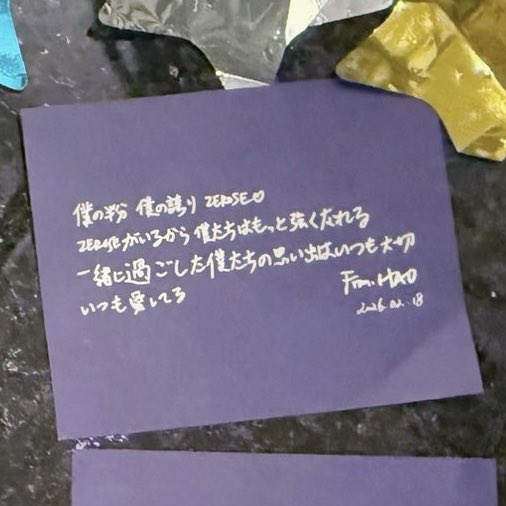 僕の半分 僕の誇り ZEROSE♡
ZEROSEがいるから僕たちはもっと強くなれる
一緒に過ごした僕たちの思い出はいつも大切
いつも愛してる
From. HAO
2026.02.18